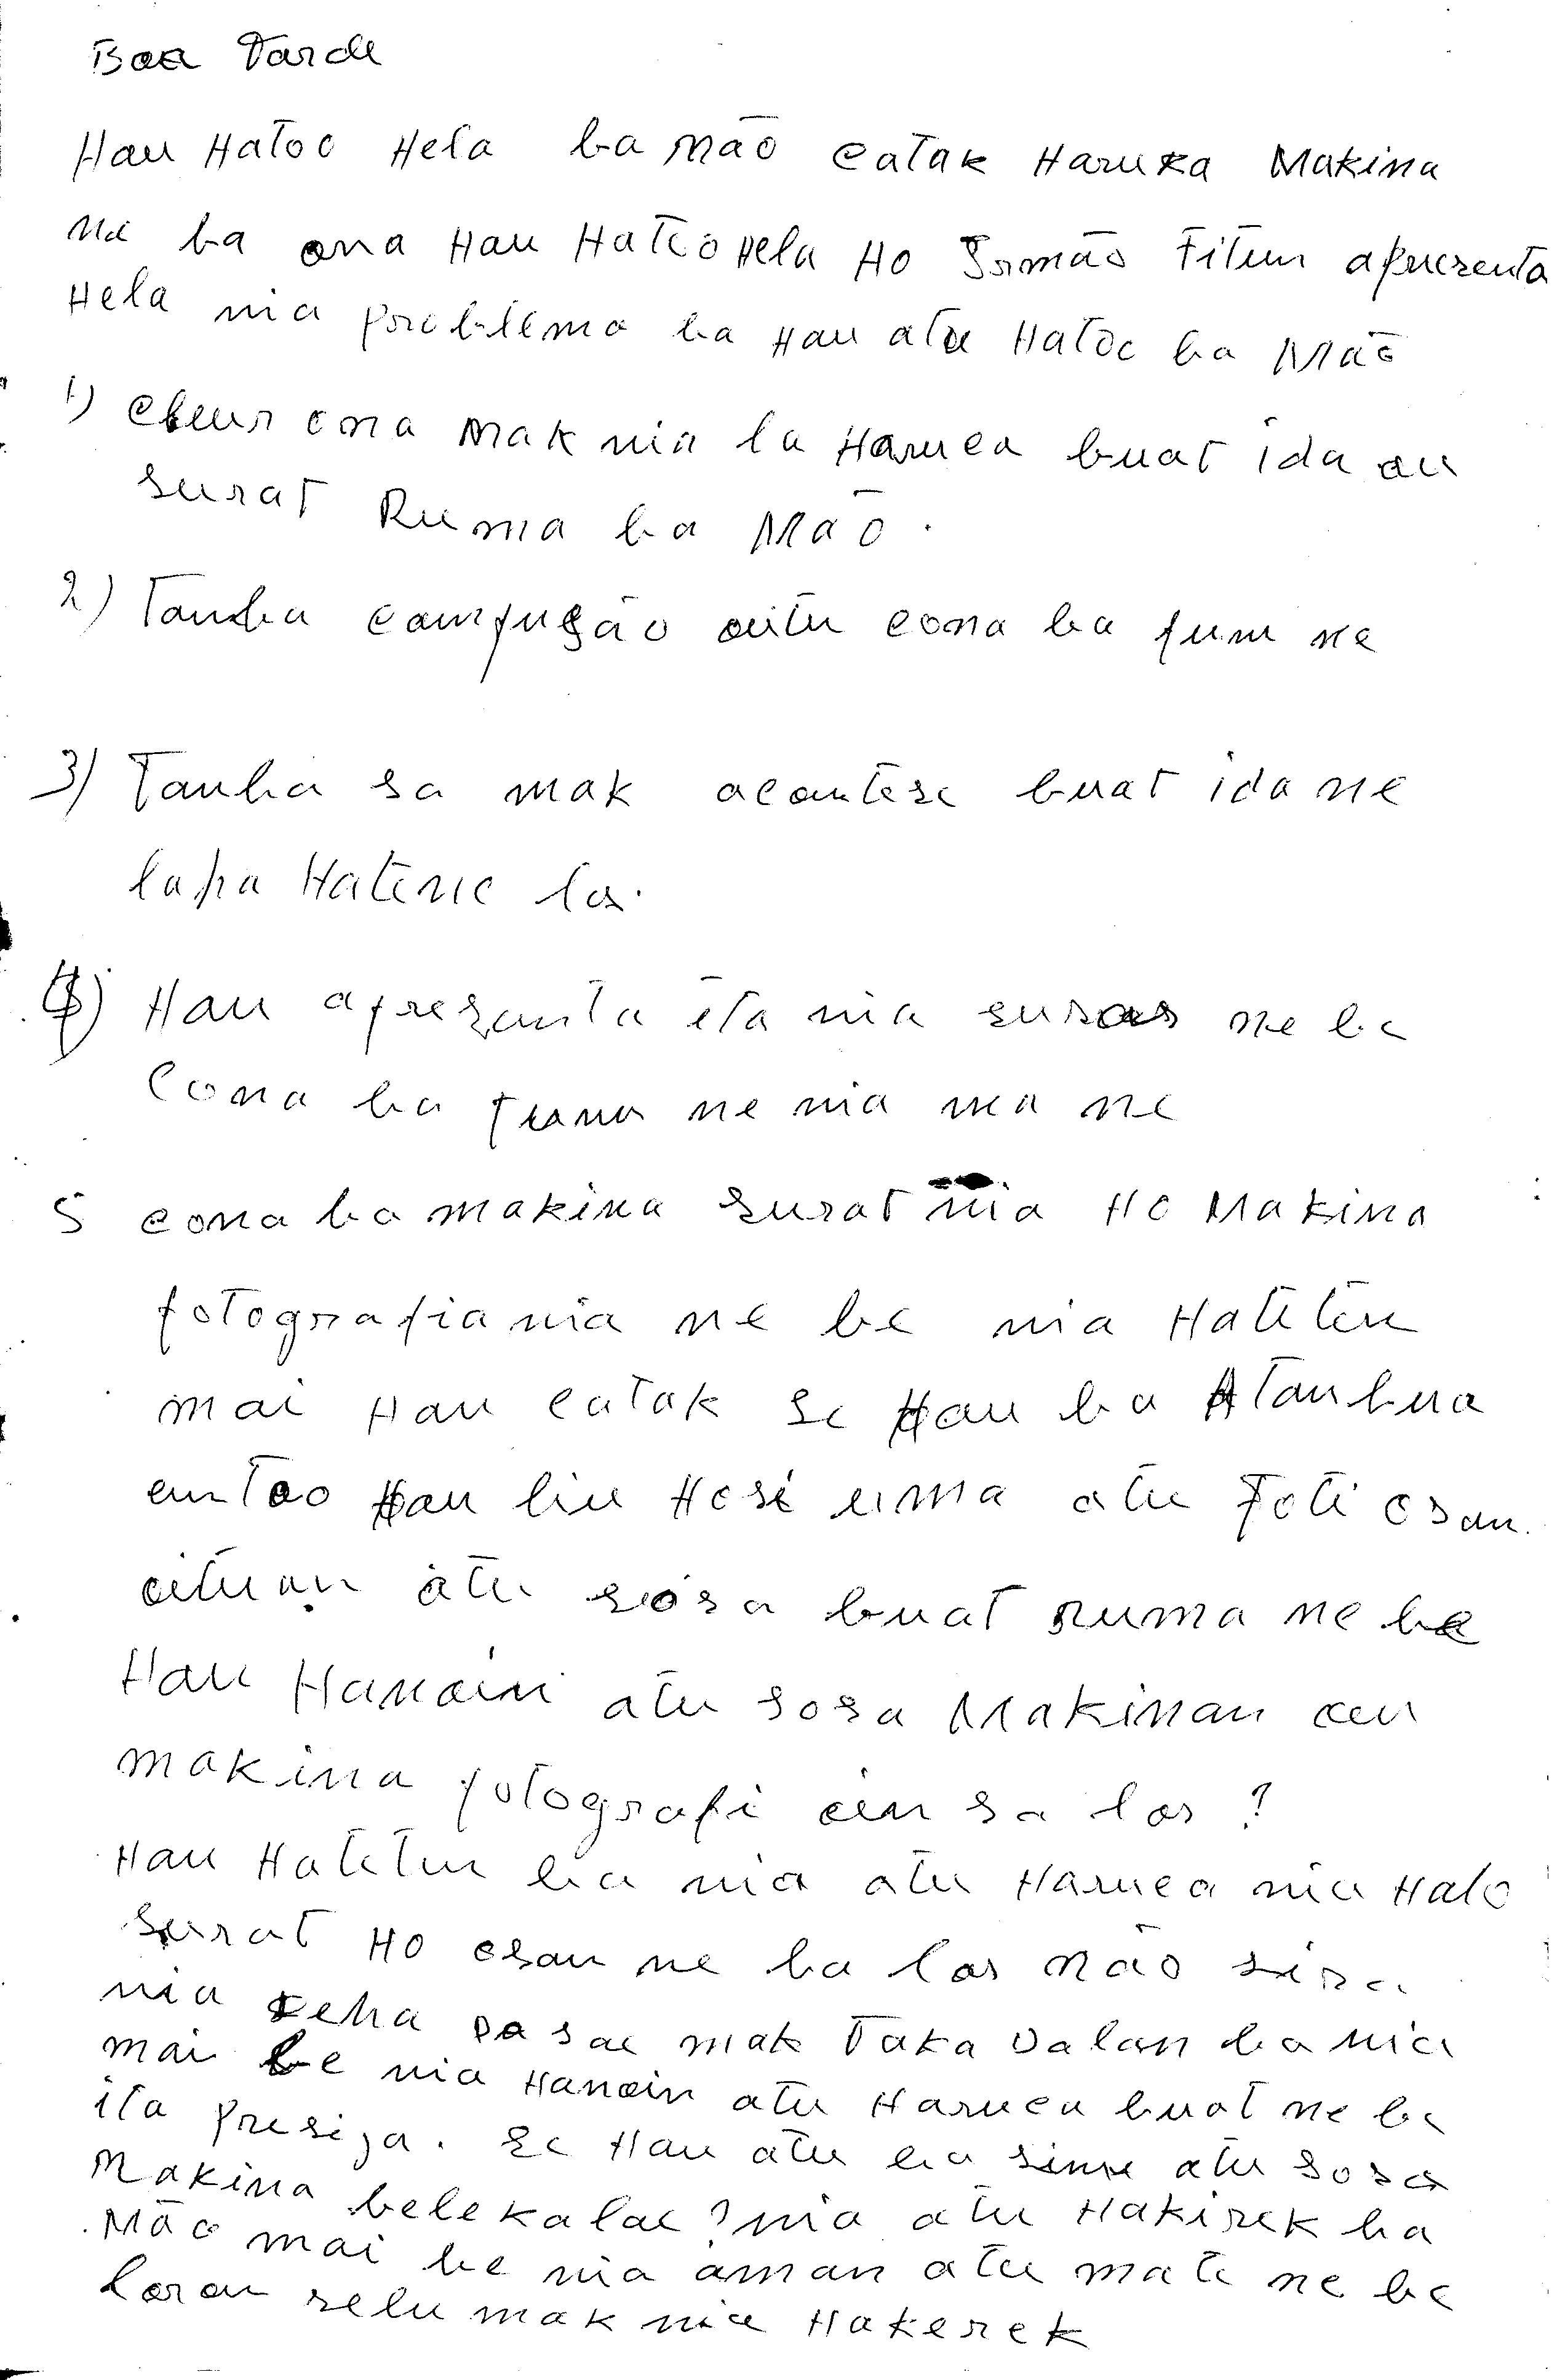 Boa Tarde
Hau Hatoo Hela ba mão catak Haruka Makina
ne ba ona Hau Hatoo Hela Ho Irmão Fitun aprezenta
Hela nia problema ba Hau atu Hatoo ba Mão
1) cleur ona mak nia la Haruca buat ida ou
surat Ruma ba Mão.
2) Tamba comfusão oitu cona ba fum ne
3) Tamba sa mak acontese buat ida ne
lapa Hatene los.
4) Hau aprezanta ita nia susar ne be
cona ba ne nia ma ne
5 cona ba makina surat nia Ho Makina
fotografia nia ne be nia Hateten
mai Hau catak se Hau ba Atanbua
entao Hau liu Hosi uma atu Foti osan
oituan atu sosa buat ruma ne be
Hau Hanoin atu sosa Makinan ou
makina fotografi oin sa los?
Hau Hateten ba nia atu Haruca nia Halo
surat Ho osan ne ba los não sira
nia mak Taka Dalan ba nia
mai be nia Hanoin atu Haruca buat ne be
ita presiza. se Hau atu ba simu atu sosa
Makina bele kalae? nia atu Hakirek ba
Mão mai be nia aman atu mate ne be
loron selu mak nia Hakerek